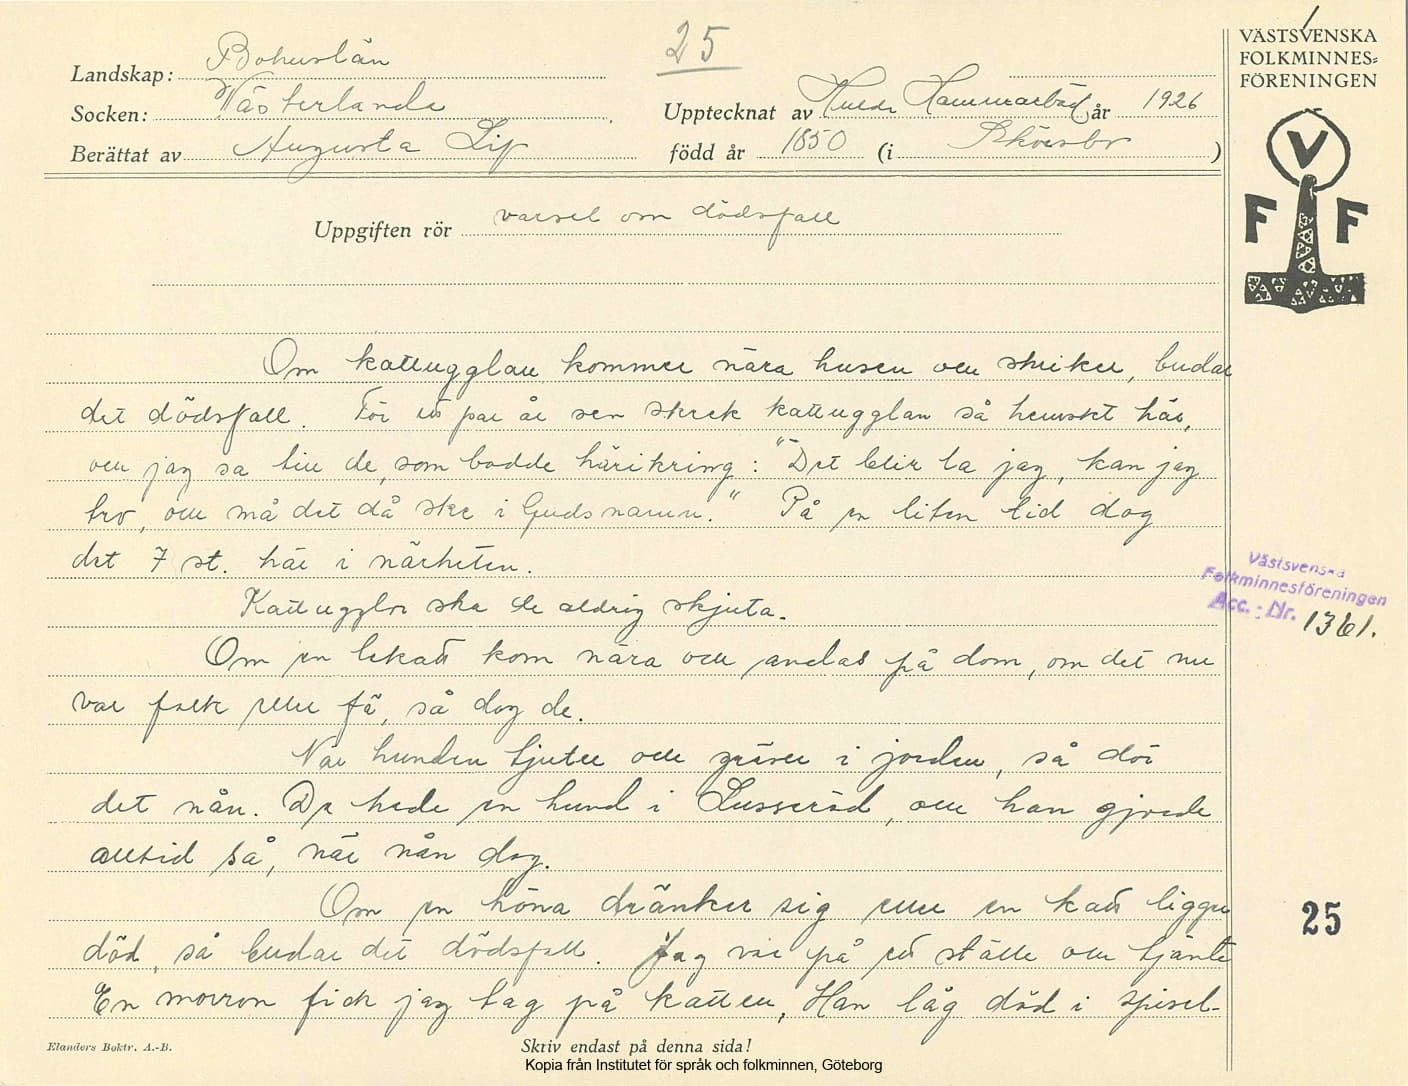 25
VÄSTSVENSKA
FOLKMINNES=
FÖRENINGEN
Landskap: Bohuslän
Socken: Västerlanda
Upptecknat av Hulda Hammarbäck år 1926
Berättat av Augusta Lij
född år 1850 (i )
V
F F
Uppgiften rör varsel om dödsfall
Om kattugglan kommer nära husen och skriker, budar
det dödsfall. För ett par år sen skrek kattugglan så hemskt här,
och jag sa till de, som bodde härikring: "Det blir la jag, kan jag
tro, och må det då ske i Guds namn." På en liten tid dog
det 7 st. här i närheten.
Kattugglor ska de aldrig skjuta.
Om en lekatt kom nära och andas på dom, om det nu
var folk eller fä, så dog de.
När hunden tjuter och gräver i jorden, så dör
det nån. De hade en hund i Lusseröd, och han gjorde
alltid så, när nån dog.
Om en höna dränker sig eller en katt ligger
död, så budar det dödsfall. Jag var på ett ställe och tjänte
En morron fick jag tag på katten, Han låg död i spisel-
Västsvenska
Folkminnesföreningen
Acc. - Nr. 1361.
25
Elanders Boktr. A.-B.
Skriv endast på denna sida!
Kopia från Institutet för språk och folkminnen, Göteborg